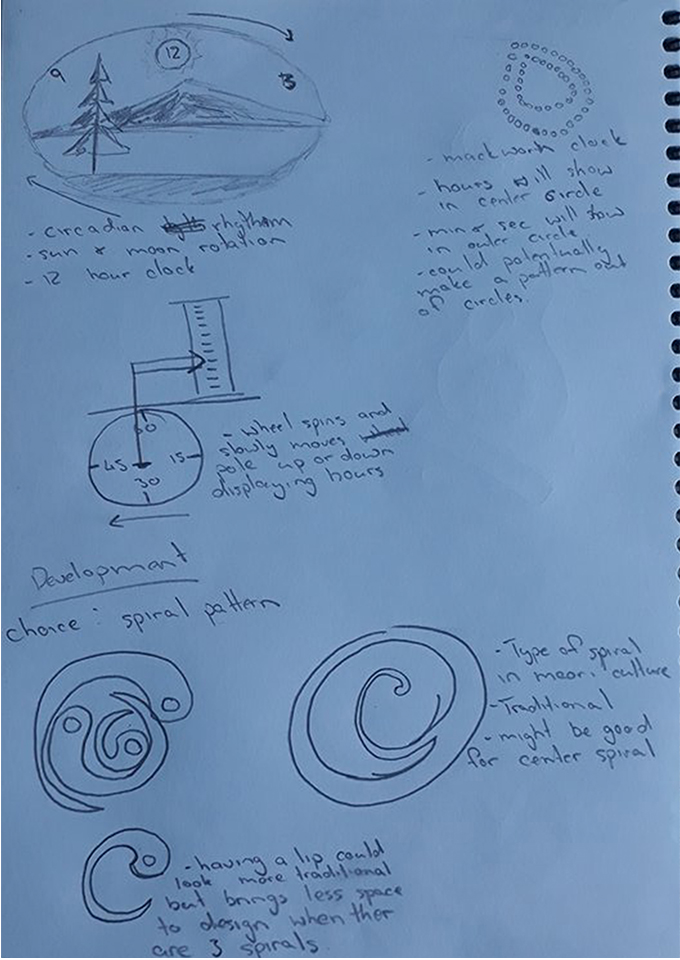 12
9
3
- circadian rhythm
- sun & moon rotation
- 12 hour clock
- mackworth clock
- hours will show
in center circle
- min & sec will show
in outer circle
- could potentially
make a pattern out
of circles.
60
45
15
30
- wheel spins and
slowly moves
pole up or down
displaying hours
Development
choice : spiral pattern
- Type of spiral
in maori culture
- Traditional
- might be good
for center spiral
- having a lip could
look more traditional
but brings less space
to design when ther
are 3 spirals.